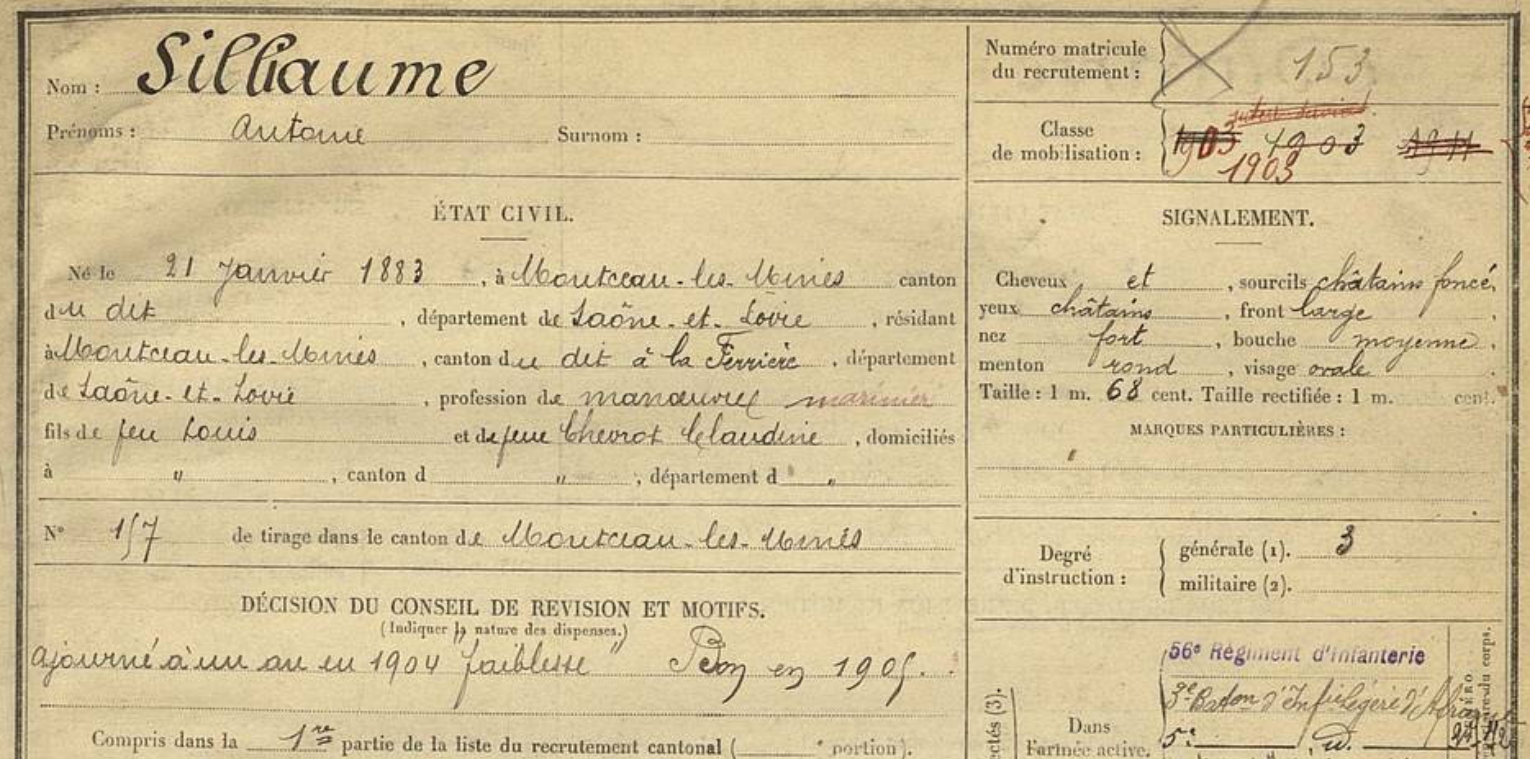 Nom : Silbaume
Prénoms : Antoine Surnom :
ÉTAT CIVIL.
Né le 21 Janvier 1883, à Montceau-les-Mines canton
du dit, département de Saône-et-Loire, résidant
à Montceau-les-Mines, canton du dit à la Ferrière, département
de Saône-et-Loire, profession de manœuvre marinier
fils de feu Louis et de feue Chevrot Claudine, domiciliés
à ", canton d ", département d "
N° 157 de tirage dans le canton de Montceau-les-Mines
DÉCISION DU CONSEIL DE REVISION ET MOTIFS.
(Indiquer la nature des dispenses.)
ajourné à un an en 1904 "faiblesse" Bon en 1905.
Compris dans la 1re partie de la liste du recrutement cantonal ( portion).
Numéro matricule
du recrutement : 153
Classe
de mobilisation : 1903 1903
1903
SIGNALEMENT.
Cheveux et, sourcils châtains foncé,
yeux châtains, front large,
nez fort, bouche moyenne,
menton rond, visage ovale.
Taille : 1 m. 68 cent. Taille rectifiée : 1 m. cent.
MARQUES PARTICULIÈRES :
"
Degré
d'instruction :
générale (1). 3
militaire (2).
56e Régiment d'Infanterie
3e Baton d'Infie Légère d'Afrique
Dans
l'armée active.
5e d.